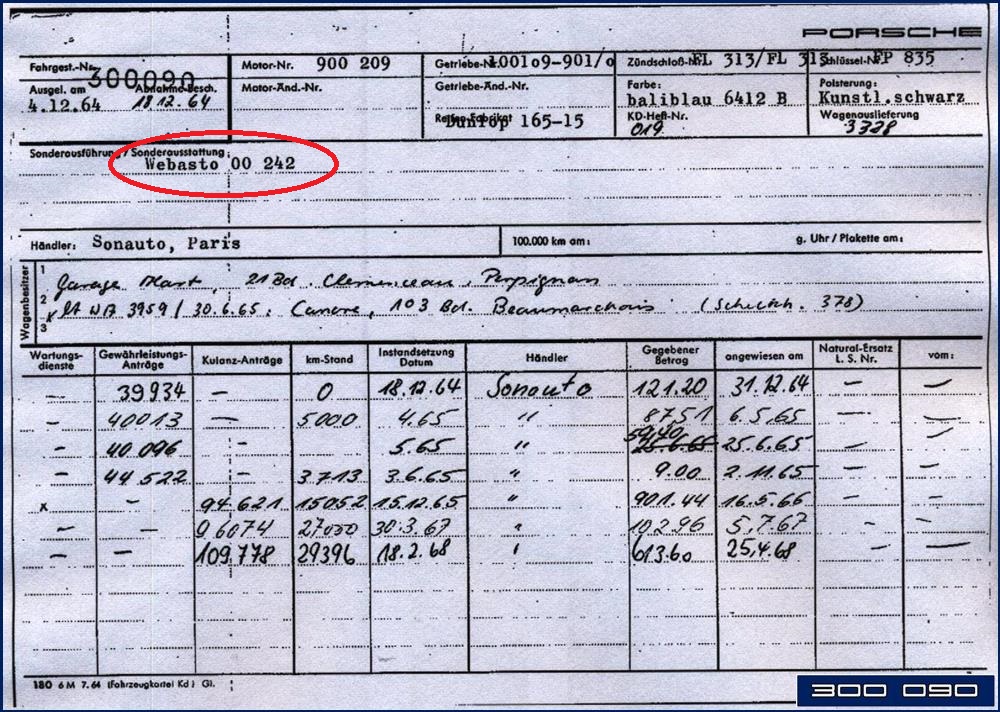 PORSCHE
Fahrgest.-Nr. 300090 Motor-Nr. 900 209 Getriebe-Nr. 100109-901/0 Zündschloß-Nr. FL 313/FL 313 Schlüssel-Nr. FP 835
Ausgel. am 4.12.64 Abnahme-Besch. 18.12.64 Motor-Änd.-Nr. Getriebe-Änd.-Nr. Farbe: baliblau 6412 B Polsterung: Kunstl.schwarz
Reifen-Fabrikat Dunlop 165-15 KD-Heft-Nr. 019 Wagenauslieferung 3328
Sonderausführung / Sonderausstattung:
Webasto 00 242
Händler: Sonauto, Paris 100.000 km am: g. Uhr / Plakette am:
Wagenbesitzer
1 Garage 21 Bd. Clemenceau, Perpignan
2 lt WA 3959 / 30.6.65: 103 Bd. Beaumarchais (Scheckh. 378)
3
Wartungsdienste Gewährleistungs-Anträge Kulanz-Anträge km-Stand Instandsetzung Datum Händler Gegebener Betrag angewiesen am Natural-Ersatz L. S. Nr. vom:
— 39934 — 0 18.12.64 Sonauto 121.20 31.12.64 — —
— 40013 — 5000 4.65 " 87.51 6.5.65 — —
— 40096 - 5.65 " 59.40 25.6.65 — —
- 44522 - 3713 3.6.65 " 9.00 2.11.65 — —
x - 94621 15052 15.12.65 " 901.44 16.5.66 — —
— — 96074 27000 30.3.67 " 102.96 5.7.67 - -
— — 109.778 29396 18.2.68 " 613.60 25.4.68 — —
180 6 M 7. 64 (Fahrzeugkartei Kd) Gl.
300 090